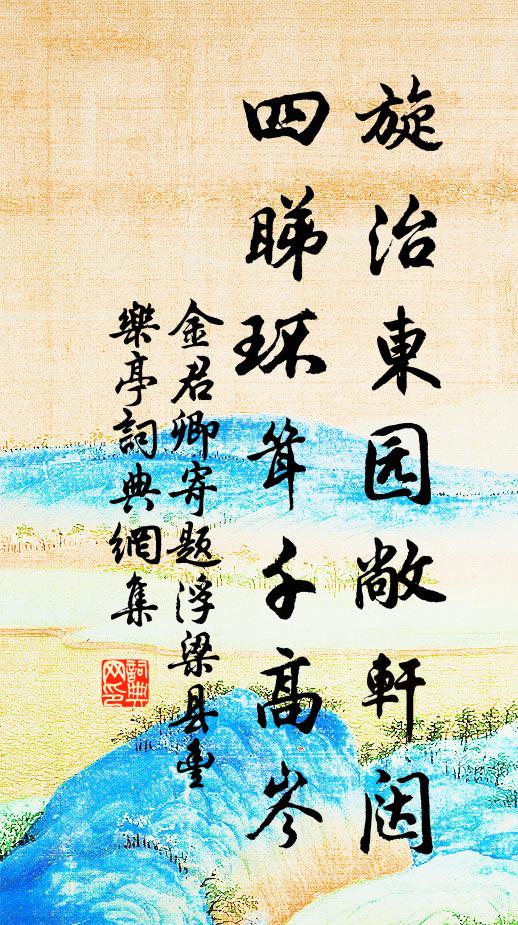 旋治東园敞軒闼
四睇环耸千高岑
金君卿寄题浮梁县豊
樂亭詞典網集
詞典网印